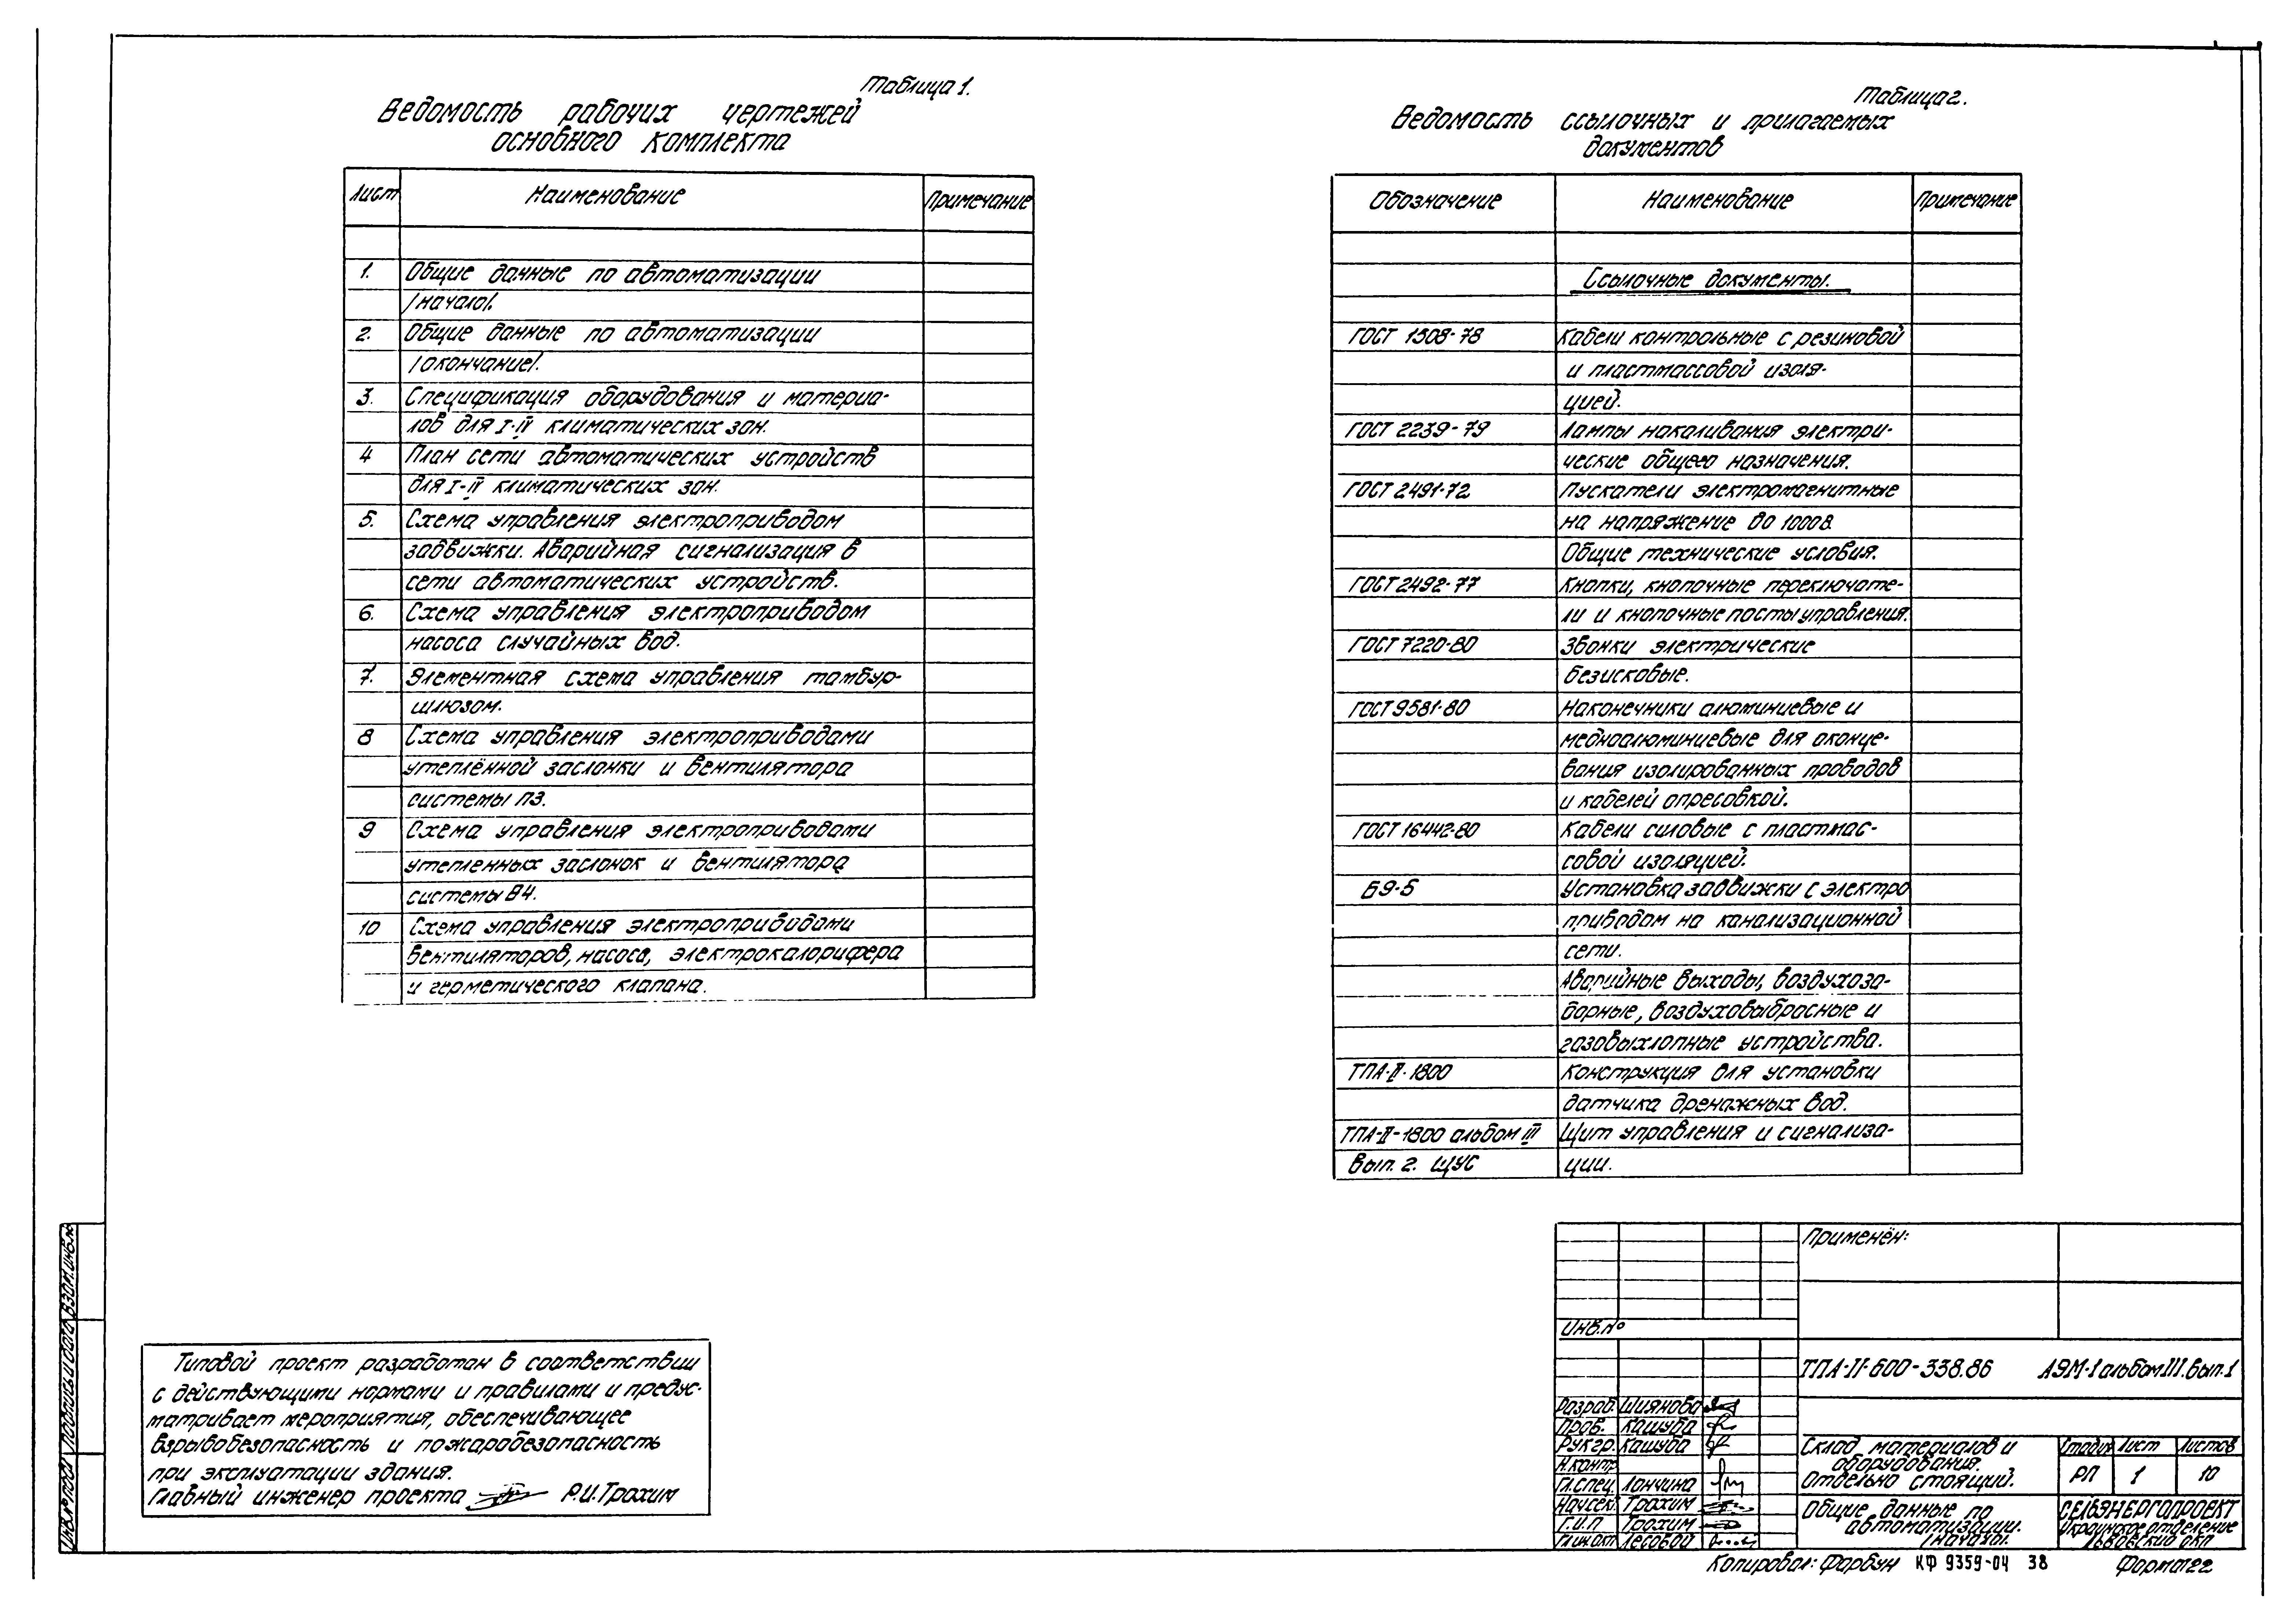 Таблица 1.
Ведомость рабочих чертежей
основного комплекта
Лист Наименование Примечание
1. Общие данные по автоматизации
/начало/.
2. Общие данные по автоматизации
/окончание/.
3. Спецификация оборудования и материа-
лов для I-IV климатических зон.
4 План сети автоматических устройств
для I-IV климатических зон.
5. Схема управления электроприводом
задвижки. Аварийная сигнализация в
сети автоматических устройств.
6. Схема управления электроприводом
насоса случайных вод.
7. Элементная схема управления тамбур-
шлюзом.
8 Схема управления электроприводами
утеплённой заслонки и вентилятора
системы П3.
9 Схема управления электроприводами
утепленных заслонок и вентилятора
системы В4.
10 Схема управления электроприводами
вентиляторов, насоса, электрокалорифера
и герметического клапана.
Таблица 2.
Ведомость ссылочных и прилагаемых
документов
Обозначение Наименование Примечание
Ссылочные документы.
ГОСТ 1508-78 Кабели контрольные с резиновой
и пластмассовой изоля-
цией.
ГОСТ 2239-79 Лампы накаливания электри-
ческие общего назначения.
ГОСТ 2491-72 Пускатели электромагнитные
на напряжение до 1000В.
Общие технические условия.
ГОСТ 2492-77 Кнопки, кнопочные переключате-
ли и кнопочные посты управления.
ГОСТ 7220-80 Звонки электрические
безисковые.
ГОСТ 9581-80 Наконечники алюминиевые и
медноалюминиевые для оконце-
вания изолированных проводов
и кабелей опресовкой.
ГОСТ 16442-80 Кабели силовые с пластмас-
совой изоляцией.
Б9-5 Установка задвижки с электро
приводом на канализационной
сети.
Аварийные выходы, воздухоза-
борные, воздуховыбросные и
газовыхлопные устройства.
ТПА-II-1800 Конструкция для установки
датчика дренажных вод.
ТПА-II-1800 альбом III Щит управления и сигнализа-
вып. 2. ЩУС ции.
Типовой проект разработан в соответствии
с действующими нормами и правилами и предус-
матривает мероприятия, обеспечивающее
взрывобезопасность и пожаробезопасность
при эксплуатации здания.
Главный инженер проекта Р.И.Трохим
Взам. инв.№
Подпись и дата
Инв.№ подл
Применён:
Инв.№
ТПА-II-600-338.86 АЭМ-1 альбом III. вып.1
Разраб. Шиянова
Пров. Кашуба
Рук.гр. Кашуба
Н.контр
Гл.спец. Лончина
Нач.сек. Трохим
Г.И.П Трохим
Гл.ин.окп Лесовой
Склад материалов и
оборудования.
Отдельно стоящий.
Стадия Лист Листов
РП 1 10
Общие данные по
автоматизации.
/начало/.
СЕЛЬЭНЕРГОПРОЕКТ
Украинское отделение
Львовский окп
Копировал: Фарбун КФ 9359-04 38 Формат 22